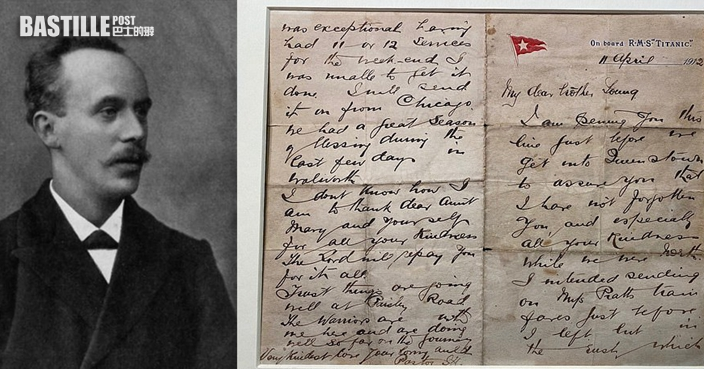 BASTILLE POST
巴士的報
On board R.M.S "TITANIC."
11 April 1912
My dear brother Young
I am penning you this
line just before we
get into Queenstown
to assure you that
I have not forgotten
you, and especially
all your kindness
while we were North.
I intended sending
on Mrs Pratts train
fares just before
I left but in
the rush which
was exceptional having
had 11 or 12 services
for the week-end I
was unable to get it
done. I will send
it on from Chicago.
We had a great season
of blessing during the
last few days in
Walworth
I dont know how I
am to thank dear Aunt
Mary and yourself
for all your kindness
The Lord will repay you
for it all.
Trust things are going
well at Paisley Road
The Warriors are with
me here and are doing
well so far on the journey
Very kindest love your loving auld
Pastor J.H.